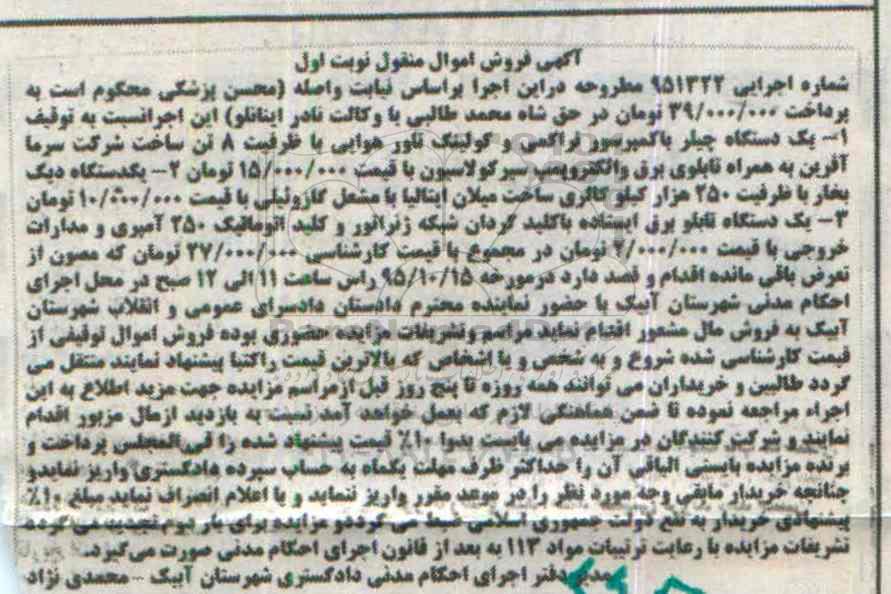 آگهی فروش اموال منقول نوبت اول
شماره اجرایی ۹۵۱۳۲۲ مطروحه دراین اجرا براساس نیابت واصله (محسن پزشکی محکوم است به
پرداخت ۳۹/۰۰۰/۰۰۰ تومان در حق شاه محمد طالبی با وکالت نادر اینانلو) این اجرانسبت به توقیف
۱- یک دستگاه چیلر باکمپرسور تراکمی و کولینگ تاور هوایی با ظرفیت ۸ تن ساخت شرکت سرما
آفرین به همراه تابلوی برق والکتروپمپ سیرکولاسیون با قیمت ۱۵/۰۰۰/۰۰۰ تومان ۲- یکدستگاه دیگ
بخار با ظرفیت ۲۵۰ هزار کیلو کالری ساخت میلان ایتالیا با مشعل گازوئیلی با قیمت ۱۰/۰۰۰/۰۰۰ تومان
۳- یک دستگاه تابلو برق ایستاده باکلید گردان شبکه ژنراتور و کلید اتوماتیک ۲۵۰ آمپری و مدارات
خروجی با قیمت ۲/۰۰۰/۰۰۰ تومان در مجموع با قیمت کارشناسی ۲۷/۰۰۰/۰۰۰ تومان که مصون از
تعرض باقی مانده اقدام و قصد دارد درمورخه ۹۵/۱۰/۱۵ راس ساعت ۱۱ الی ۱۲ صبح در محل اجرای
احکام مدنی شهرستان آبیک با حضور نماینده محترم دادستان دادسرای عمومی و انقلاب شهرستان
آبیک به فروش مال مشعور اقدام نماید مراسم وتشریفات مزایده حضوری بوده فروش اموال توقیفی از
قیمت کارشناسی شده شروع و به شخص و یا اشخاص که بالاترین قیمت راکتبا پیشنهاد نمایند منتقل می
گردد طالبین و خریداران می توانند همه روزه تا پنج روز قبل ازمراسم مزایده جهت مزید اطلاع به این
اجراء مراجعه نموده تا ضمن هماهنگی لازم که بعمل خواهد آمد نسبت به بازدید ازمال مزبور اقدام
نمایند و شرکت کنندگان در مزایده می بایست بدوا ۱۰٪ قیمت پیشنهاد شده را فی المجلس پرداخت و
برنده مزایده بایستی الباقی آن را حداکثر ظرف مهلت یکماه به حساب سپرده دادگستری واریز نمایدو
چنانچه خریدار مابقی وجه مورد نظر را در موعد مقرر واریز ننماید و یا اعلام انصراف نماید مبلغ ۱۰٪
پیشنهادی خریدار به نفع دولت جمهوری اسلامی ضبط می گرددو مزایده برای بار دوم تجدید می گردد
تشریفات مزایده با رعایت ترتیبات مواد ۱۱۳ به بعد از قانون اجرای احکام مدنی صورت می گیرد.
مدیر دفتر اجرای احکام مدنی دادگستری شهرستان آبیک - محمدی نژاد